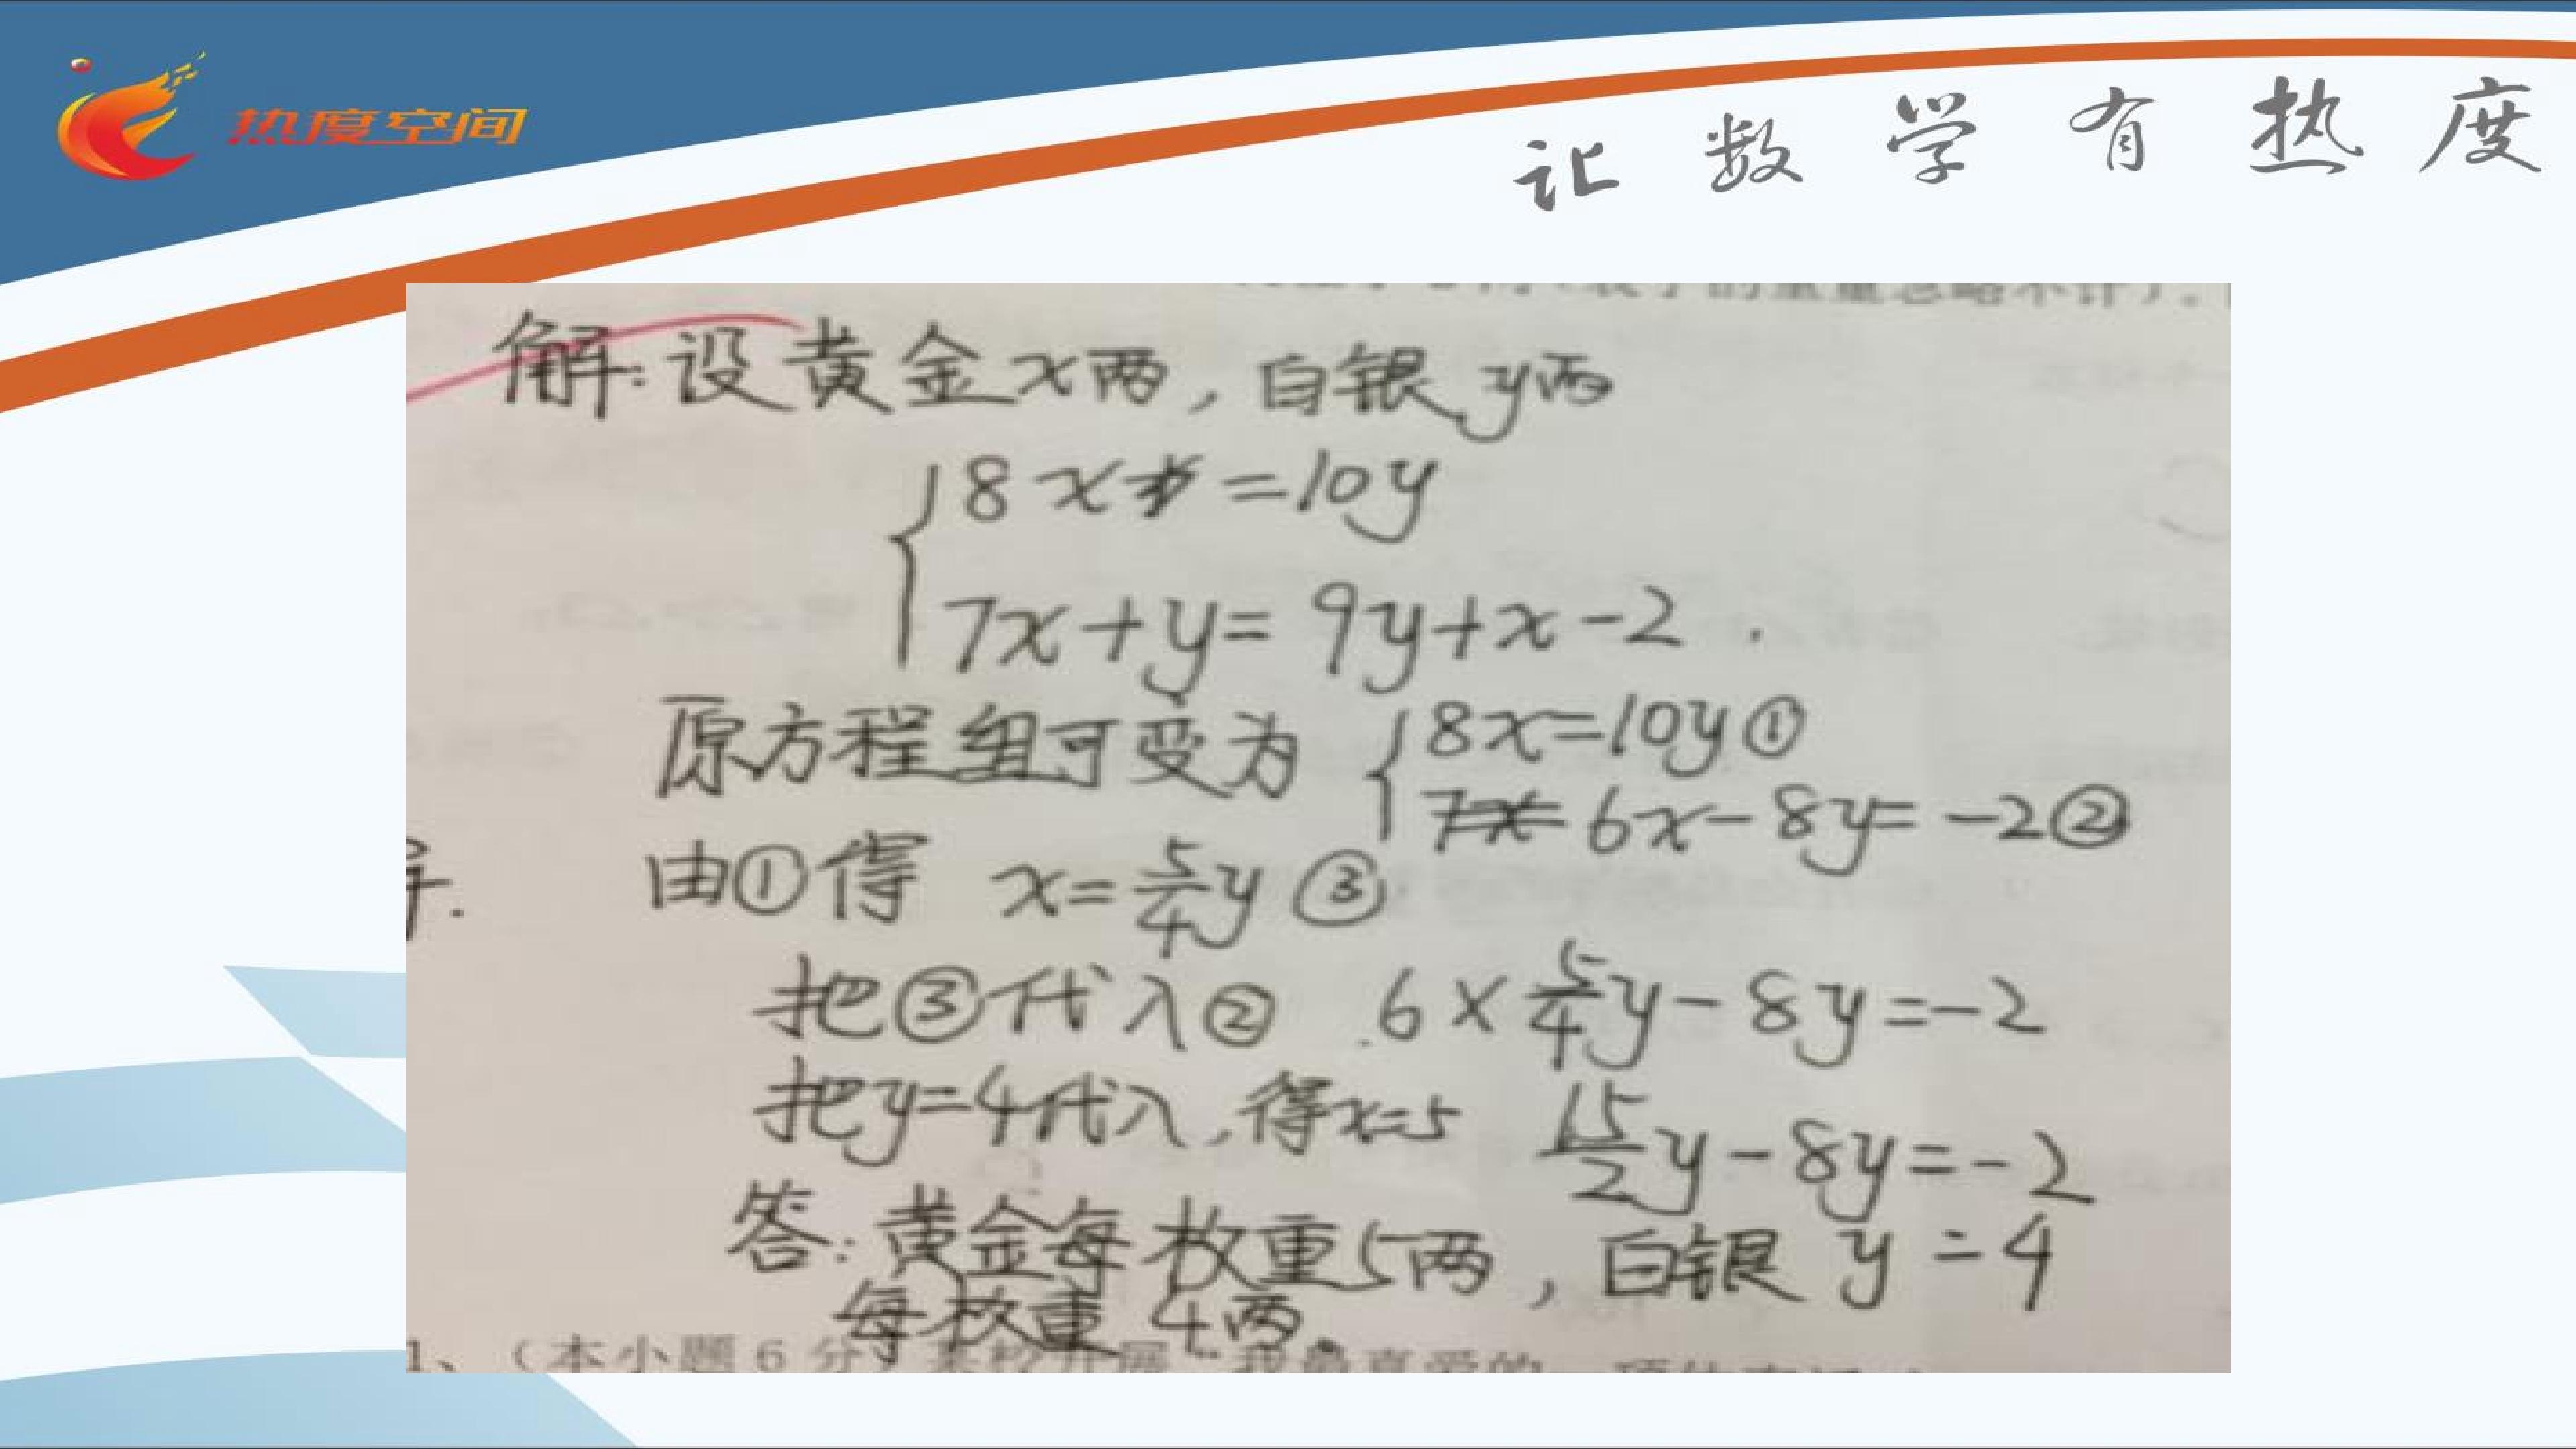 热度空间
让数学有热度
解:设黄金x两,白银y两
8x=10y
7x+y=9y+x-2.
原方程组可变为 8x=10y①
6x-8y=-2②
由①得 x=5/4y③
把③代入② 6×5/4y-8y=-2
把y=4代入,得x=5 15/2y-8y=-2
答:黄金每枚重5两,白银 y=4
每枚重4两.
1、(本小题6分